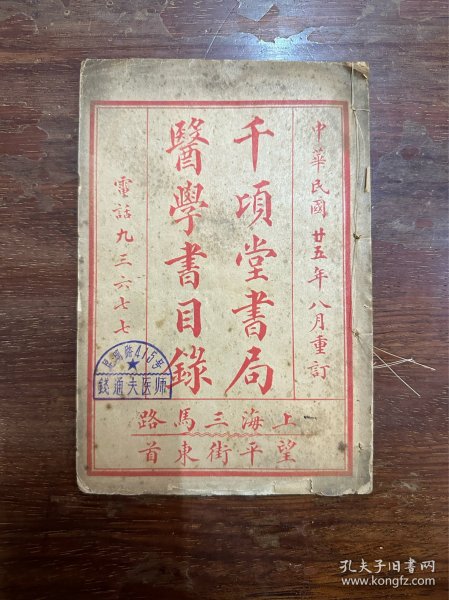 中華民國廿五年八月重訂
千頃堂書局
醫學書目錄
電話九三六七七
上海三馬路
望平街東首
路415号
錢通夫医师
孔夫子旧书网
www.kongfz.com